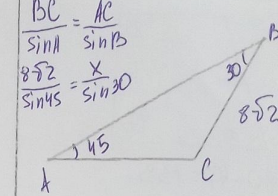 BC/sinA = AC/sinB
8√2/sin45 = x/sin30
B
30
8√2
45
A
C